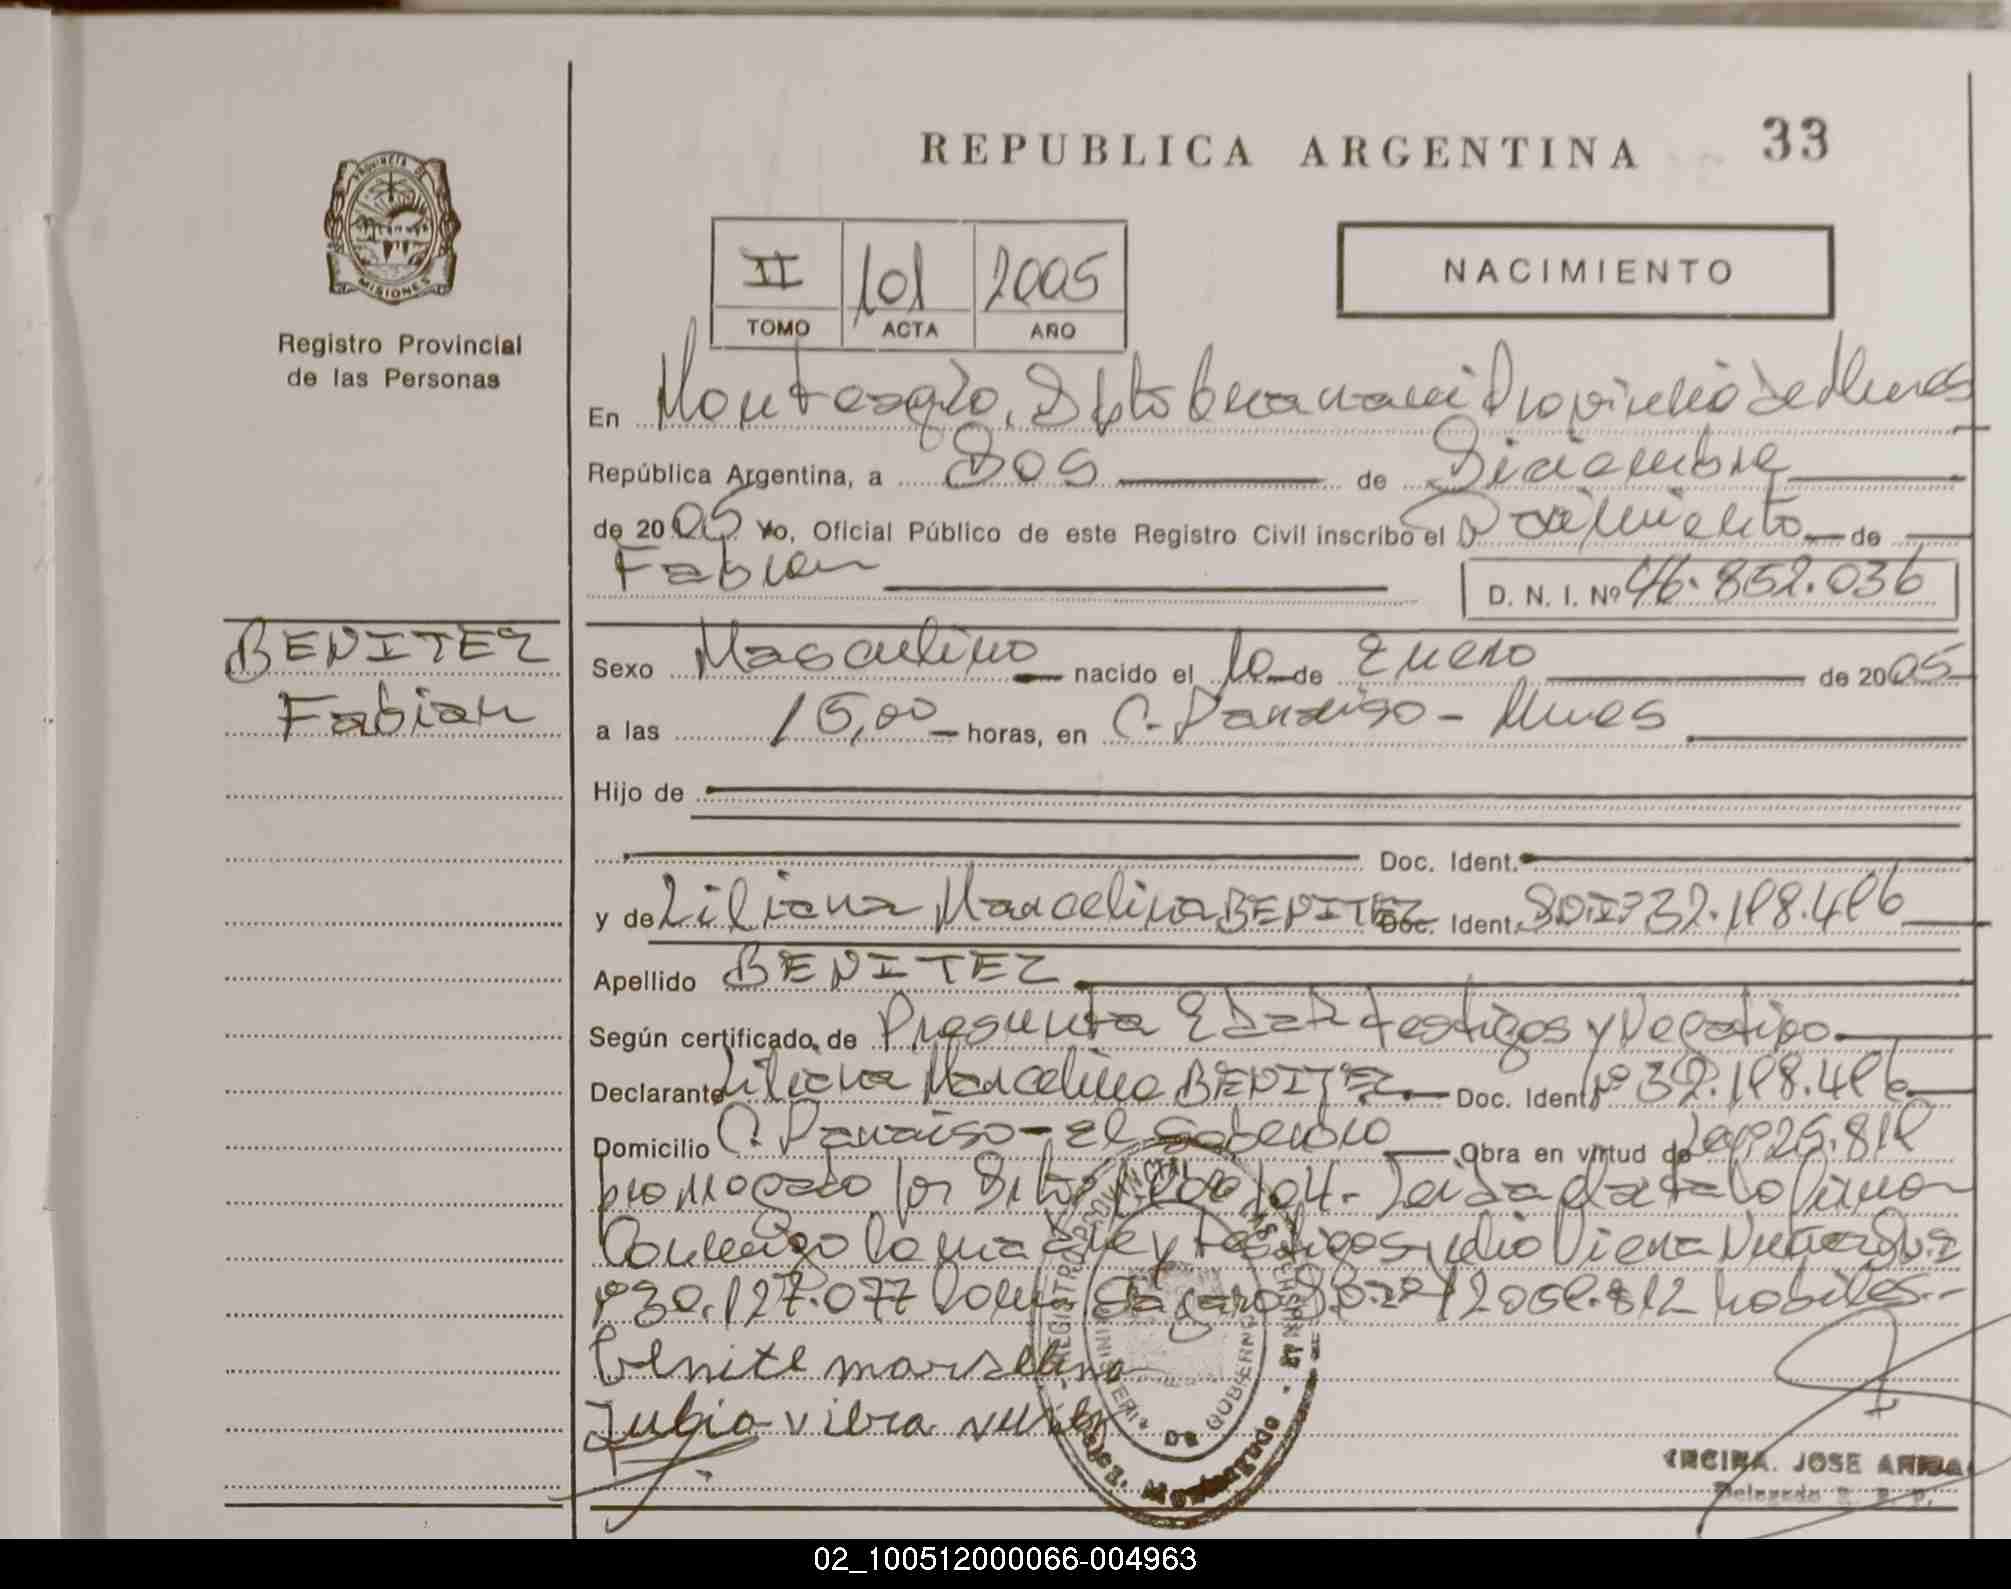 REPUBLICA ARGENTINA 33
PROVINCIA DE
MISIONES
Registro Provincial
de las Personas
II 101 2005
TOMO ACTA AÑO
NACIMIENTO
En Monteagdo, Dpto Guaranani Provincia de Mnes
República Argentina, a Dos de Diciembre
de 2005 Yo, Oficial Público de este Registro Civil inscribo el Nacimiento de
Fabian D. N. I. Nº 46.852.036
BENITEZ
Fabian
Sexo Masculino nacido el 10 de Enero de 2005
a las 15,00 horas, en C. Paraiso - Mnes
Hijo de
Doc. Ident.
y de Liliana Marcelina BENITEZ Doc. Ident. D.N.I. 32.198.496
Apellido BENITEZ
Según certificado de Presunta Edad testigos y Negativo
Declarante Liliana Marcelina BENITEZ Doc. Ident. Nº 32.198.496
Domicilio C. Paraiso - El Soberbio Obra en virtud de
por Leida el acta la firman
Conmigo la madre y testigos Julio Viera
Nº 30.127.077 habiles.-
benite marselina
Jubio viera
REGISTRO PROVINCIAL DE LAS PERSONAS
MINISTERIO DE GOBIERNO
Monteagudo
JOSE
Delegado R. P. P.
02_100512000066-004963